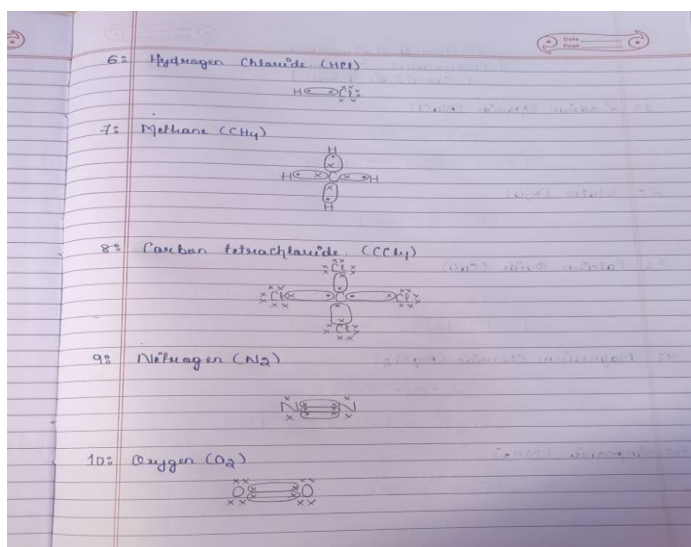 Date
Page
6: Hydrogen Chloride (HCl)
H Cl
7: Methane (CH4)
H
H C H
H
8: Carbon tetrachloride (CCl4)
Cl
Cl C Cl
Cl
9: Nitrogen (N2)
N N
10: Oxygen (O2)
O O